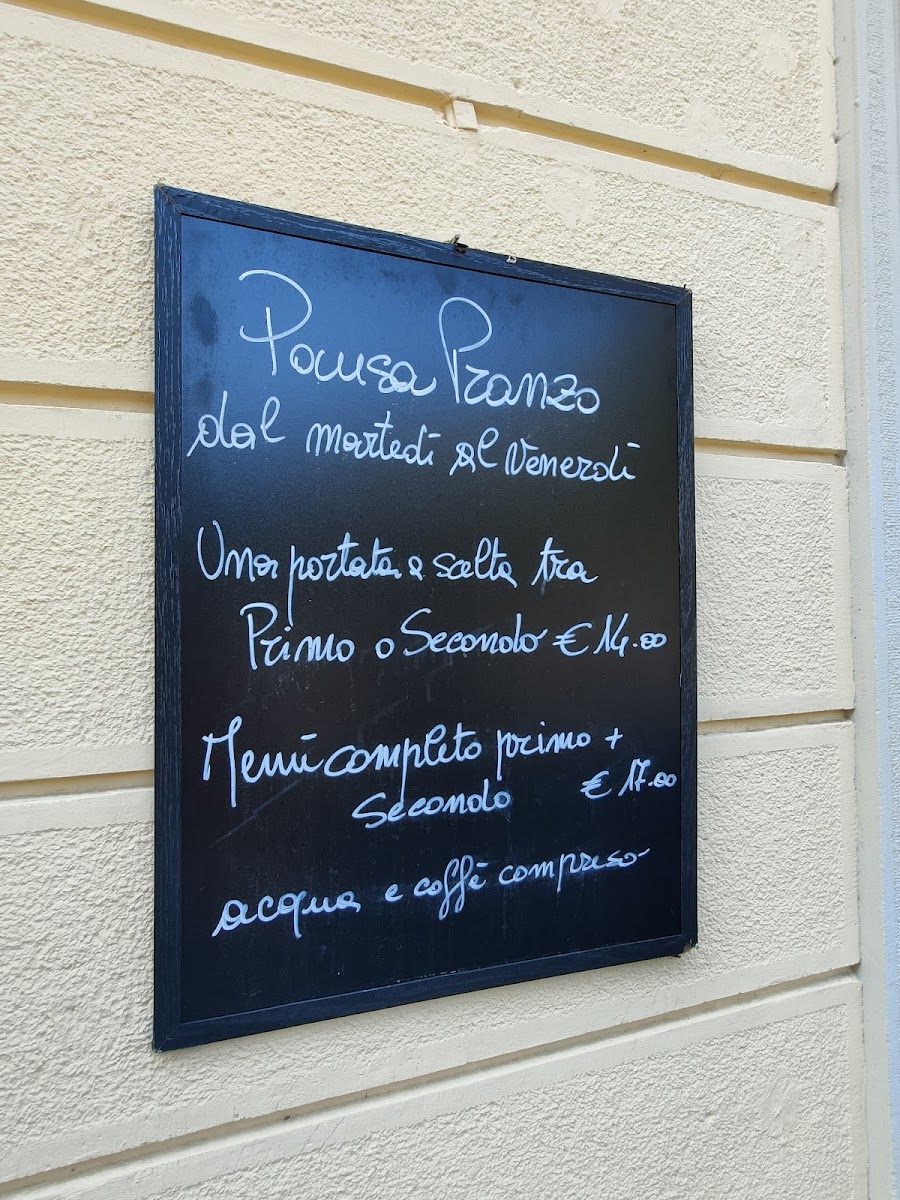 Pausa Pranzo
dal martedì al Venerdì
Una portata a scelta tra
Primo o Secondo € 14.00
Menù completo primo +
Secondo € 17.00
acqua e caffè compreso